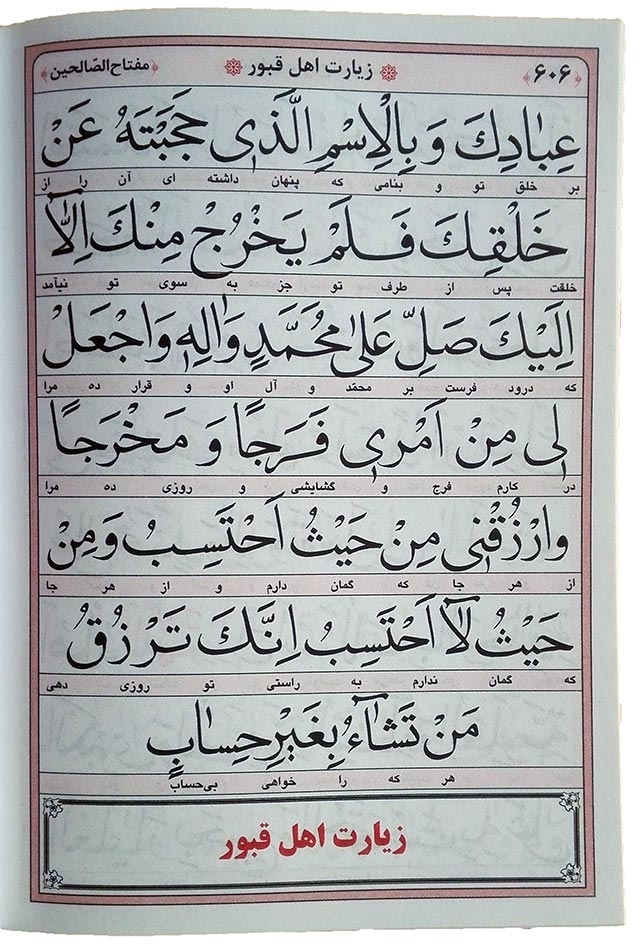 ﴿۶۰۶﴾ زیارت اهل قبور ﴿مفتاح الصّالحین﴾
عِبٰادِكَ وَ بِالْاِسْمِ الَّذى حَجَبْتَهُ عَنْ
بر خلق تو و بنامی که پنهان داشته ای آن را از
خَلْقِكَ فَلَمْ يَخْرُجْ مِنْكَ اِلاّٰ
خلقت پس از طرف تو جز به سوی تو نیامد
اِلَيْكَ صَلِّ عَلىٰ مُحَمَّدٍ وَاٰلِهِ وَاجْعَلْ
که درود فرست بر محمّد و آل او و قرار ده مرا
لى مِنْ اَمْرى فَرَجًا وَ مَخْرَجًا
در کارم فرج و گشایشی و روزی ده مرا
وارْزُقْنى مِنْ حَيْثُ اَحْتَسِبُ وَمِنْ
از هر جا که گمان دارم و از هر جا
حَيْثُ لاٰ اَحْتَسِبُ اِنَّكَ تَرْزُقُ
که گمان ندارم به راستی تو روزی دهی
مَنْ تَشٰاءُ بِغَيْرِ حِسٰابٍ
هر که را خواهی بی‌حساب
زیارت اهل قبور